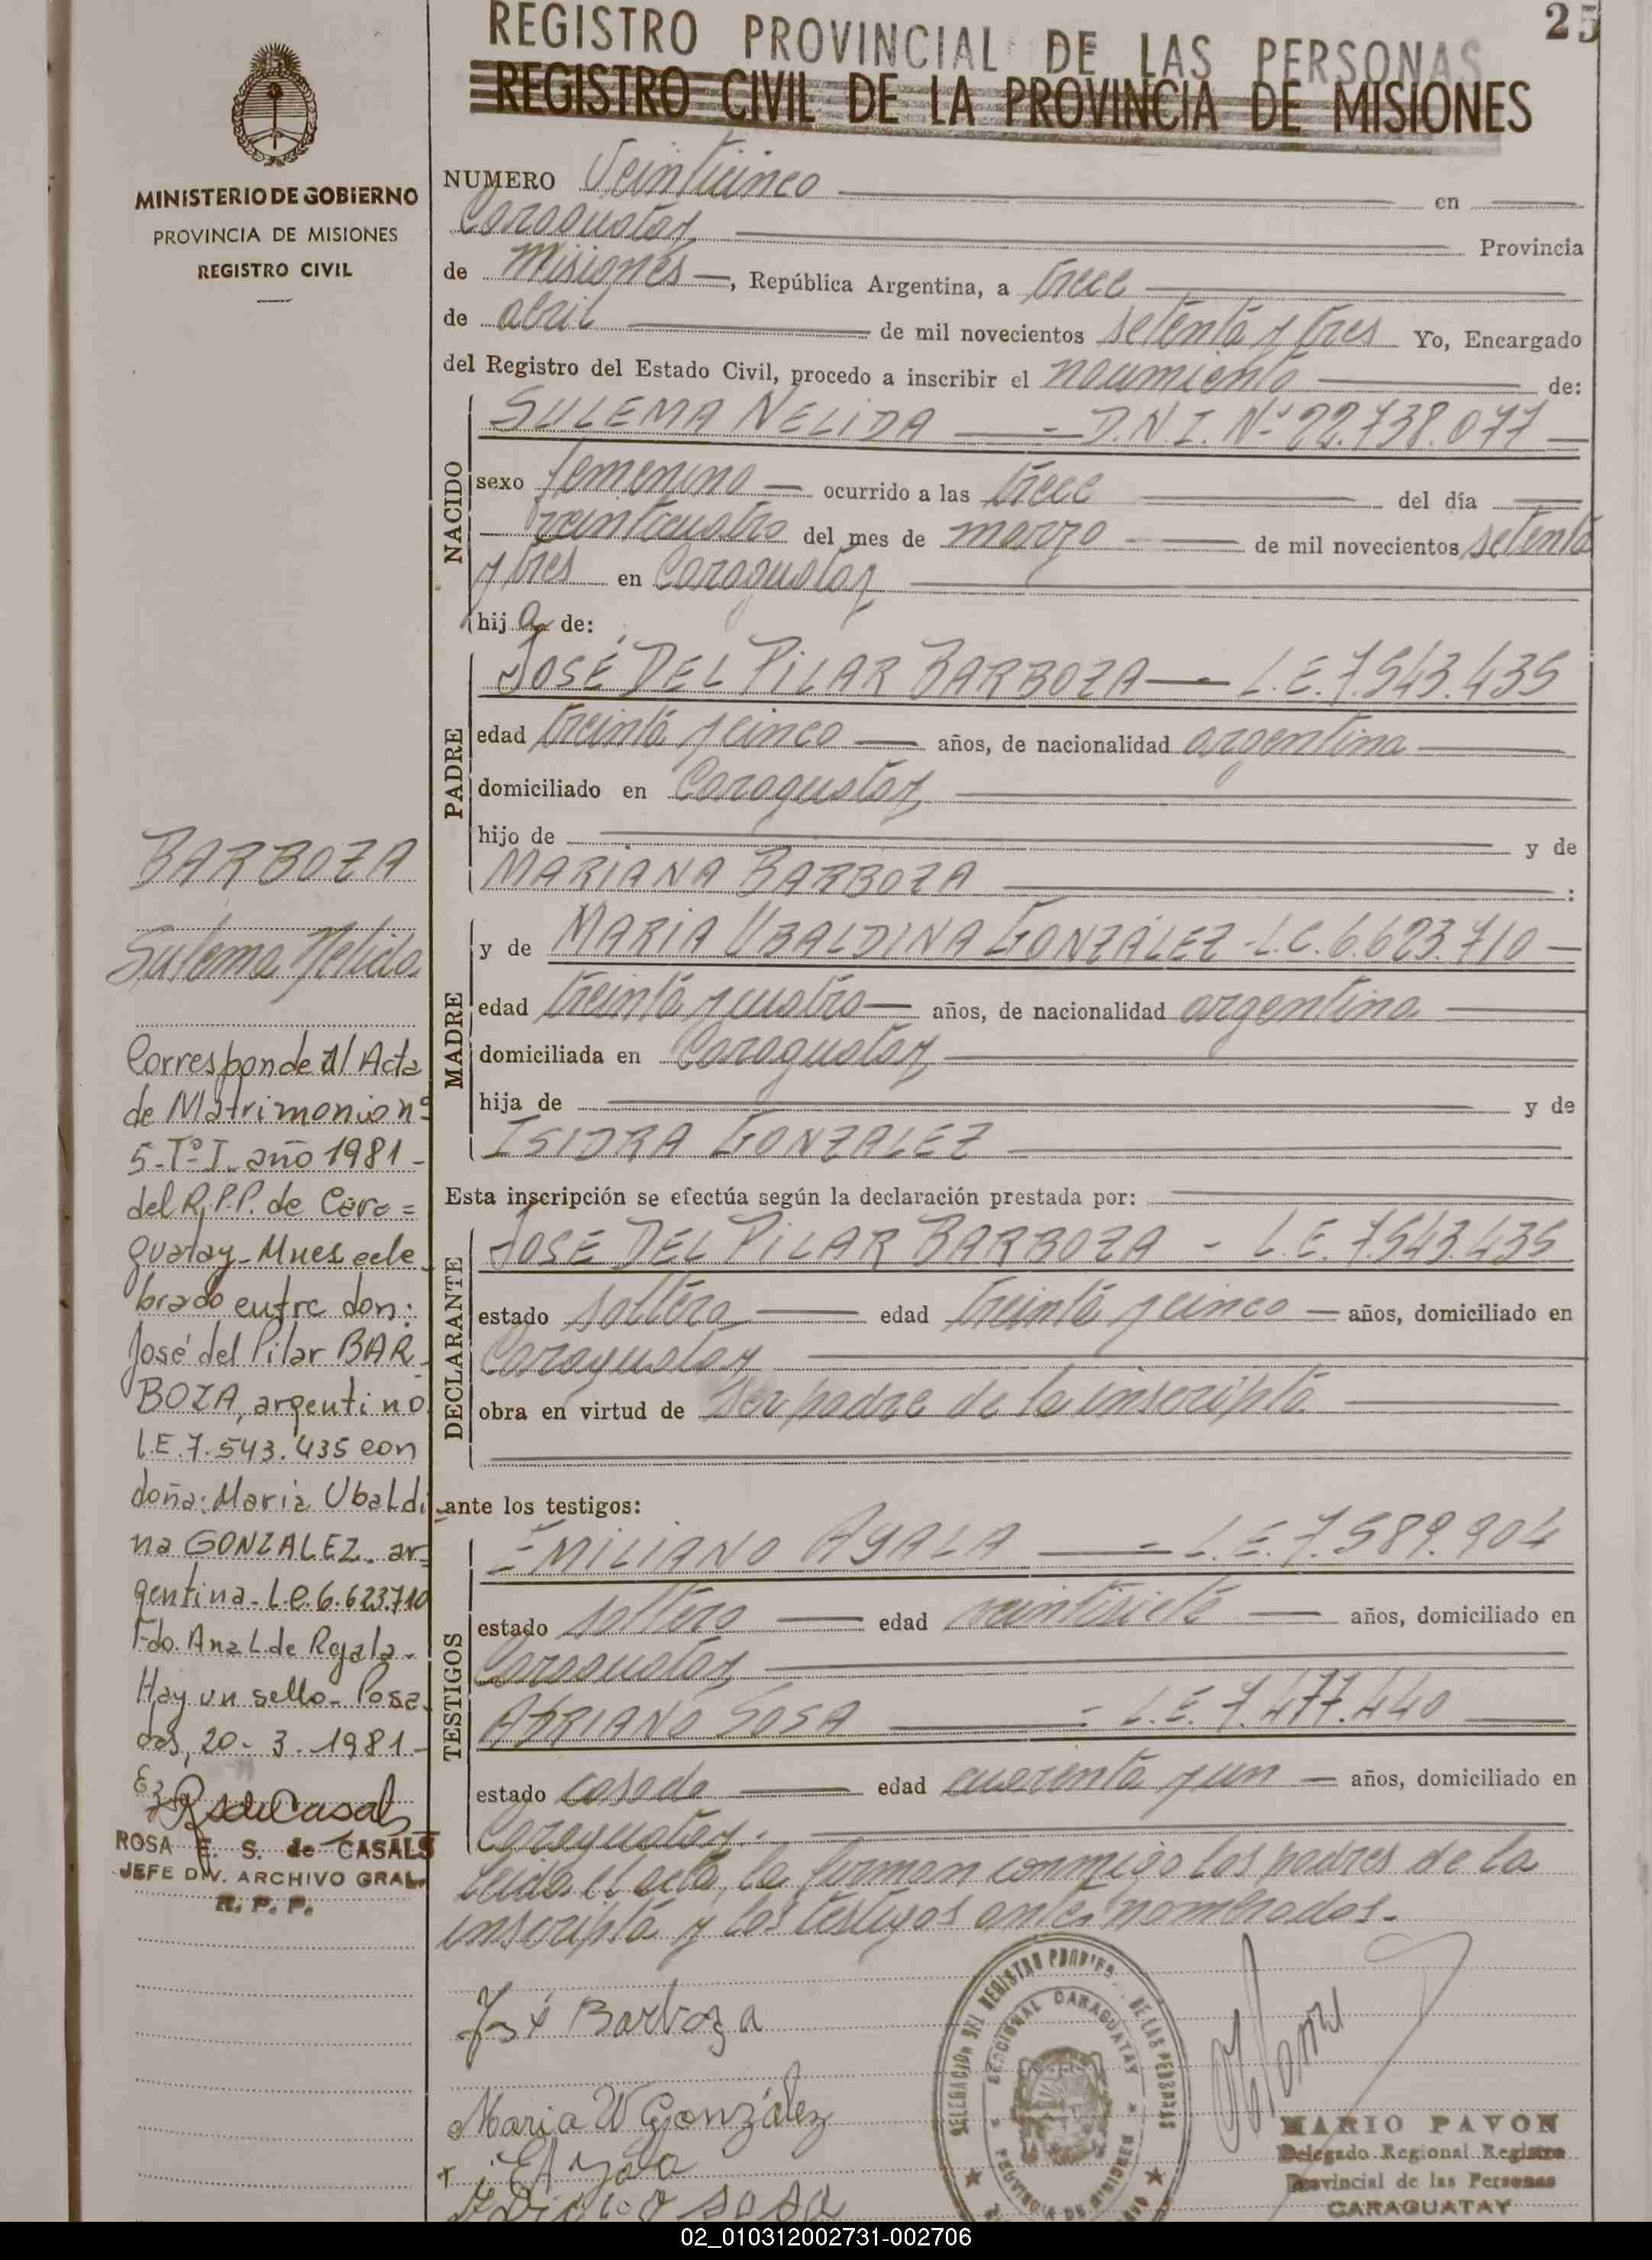 25
REGISTRO PROVINCIAL DE LAS PERSONAS
REGISTRO CIVIL DE LA PROVINCIA DE MISIONES
MINISTERIO DE GOBIERNO
PROVINCIA DE MISIONES
REGISTRO CIVIL
NUMERO Veinticinco en
Caraguatay Provincia
de Misiones, República Argentina, a trece
de abril de mil novecientos setenta y tres Yo, Encargado
del Registro del Estado Civil, procedo a inscribir el nacimiento de:
NACIDO
SULEMA NELIDA - D.N.I. Nº 22.738.077
sexo femenino ocurrido a las trece del día
veinticuatro del mes de marzo de mil novecientos setenta
y tres en Caraguatay
hija de:
PADRE
JOSÉ DEL PILAR BARBOZA - L.E. 7.543.435
edad treinta y cinco años, de nacionalidad argentina
domiciliado en Caraguatay
hijo de y de
MARIANA BARBOZA :
MADRE
y de MARIA UBALDINA GONZÁLEZ - L.C. 6.623.710
edad treinta y cuatro años, de nacionalidad argentina
domiciliada en Caraguatay
hija de y de
ISIDRA GONZALEZ
Esta inscripción se efectúa según la declaración prestada por:
DECLARANTE
JOSE DEL PILAR BARBOZA - L.E. 7.543.435
estado soltero edad treinta y cinco años, domiciliado en
Caraguatay
obra en virtud de ser padre de la inscripta
ante los testigos:
TESTIGOS
EMILIANO AYALA - L.E. 7.589.904
estado soltero edad veintisiete años, domiciliado en
Caraguatay
ADRIANO SOSA - L.E. 7.477.440
estado casado edad cuarenta y un años, domiciliado en
Caraguatay.
Leida el acta, la firman conmigo los padres de la
inscripta y los testigos ante nombrados.
José Barboza
Maria U González
EAyala
Sosa
BARBOZA
Sulema Nelida
Corresponde al Acta
de Matrimonio nº
5-Tº I. año 1981-
del R.P.P. de Cara=
guatay- Mnes cele
brado entre don:
José del Pilar BAR-
BOZA, argentino
L.E. 7.543.435 con
doña: Maria Ubaldi
na GONZALEZ. ar-
gentina. L.C. 6.623.710
Fdo. Ana L. de Rojala.
Hay un sello- Posa
das, 20-3-1981-
ROSA E. S. de CASALS
JEFE DIV. ARCHIVO GRAL.
R. P. P.
DELEGACION DEL REGISTRO PROV. DE LAS PERSONAS
SECCIONAL CARAGUATAY
PROVINCIA DE MISIONES
MARIO PAVON
Delegado Regional Registro
Provincial de las Personas
CARAGUATAY
02_010312002731-002706